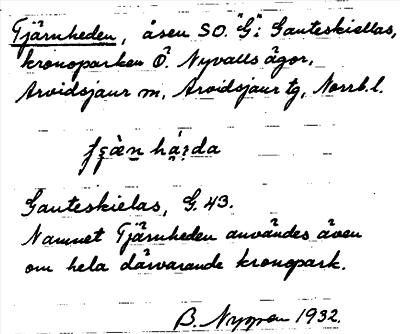 Tjärnheden, åsen SO. "G": Gauteskiellas,
kronoparken Ö. Nyvalls ägor,
Arvidsjaur sn, Arvidsjaur tg, Norrb. l.
Gauteskielas, G. 43.
Namnet Tjärnheden användes även
om hela därvarande kronopark.
B. 1932.